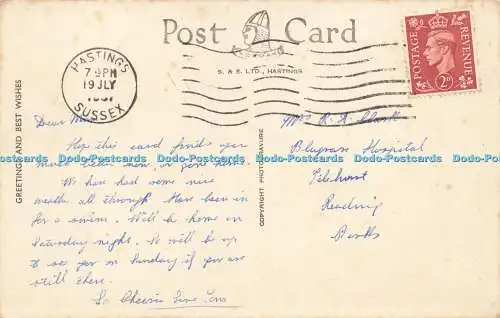 Post Card
S. & E. LTD., HASTINGS
HASTINGS
7 PM
19 JLY
SUSSEX
POSTAGE REVENUE
2D
GREETINGS AND BEST WISHES
COPYRIGHT PHOTOGRAVURE
Dear Mum
Hope this card finds you
much better
We have had some nice
weather all through. Have been in
for a swim. Will be home in
Saturday night. We will be up
to see you on Sunday if you are
still there.
So Cheerio
Hospital
Tilehurst
Reading
Berks
Dodo-Postcards Dodo-Postcards Dodo-Postcards Dodo-Postcards Dodo-Postcards Dodo-Postcards